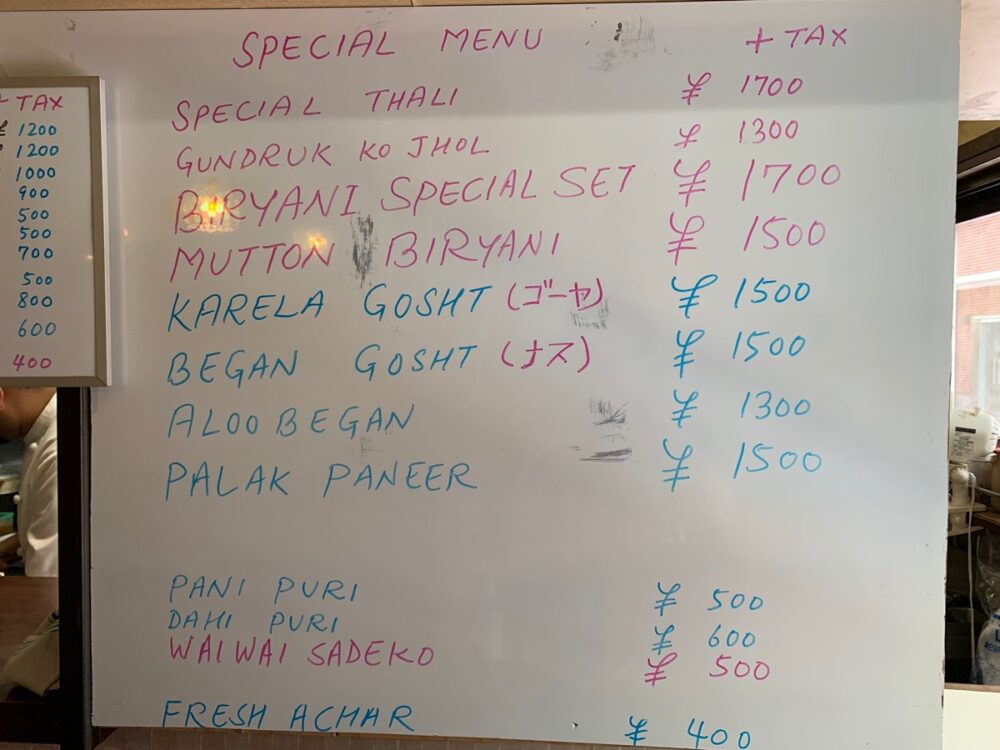 + TAX
¥ 1200
1200
1000
900
500
500
700
500
800
600
400
SPECIAL MENU + TAX
SPECIAL THALI ¥ 1700
GUNDRUK KO JHOL ¥ 1300
BIRYANI SPECIAL SET ¥ 1700
MUTTON BIRYANI ¥ 1500
KARELA GOSHT (ゴーヤ) ¥ 1500
BEGAN GOSHT (ナス) ¥ 1500
ALOO BEGAN ¥ 1300
PALAK PANEER ¥ 1500
PANI PURI ¥ 500
DAHI PURI ¥ 600
WAIWAI SADEKO ¥ 500
FRESH ACHAR ¥ 400